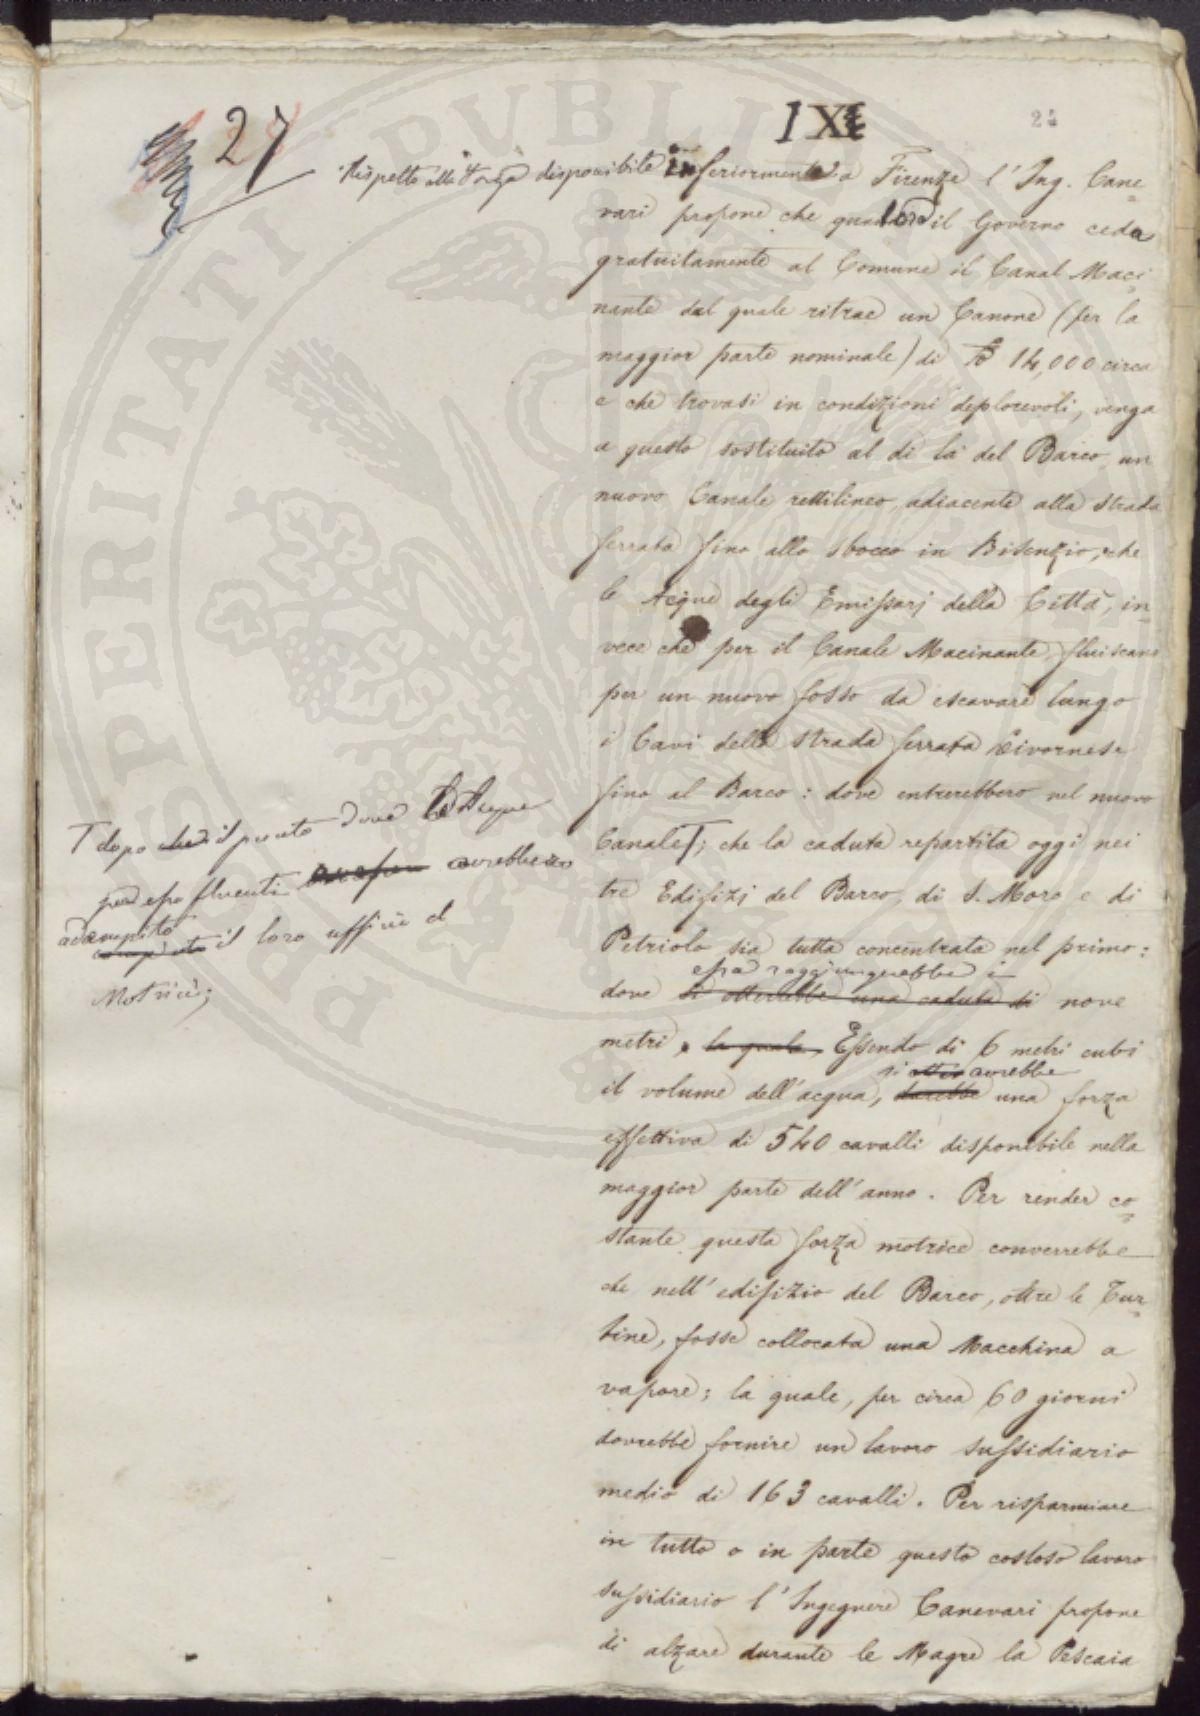 27
IX
24
Rispetto alla Forza disponibile inferiormente a Firenze l'Ing. Cane
vari propone che qualora il Governo ceda
gratuitamente al Comune il Canal Maci
nante dal quale ritrae un Canone (per la
maggior parte nominale) di 14,000 circa
e che trovasi in condizioni deplorevoli, venga
a questo sostituito al di là del Barco un
nuovo Canale rettilineo, adiacente alla strada
ferrata fino allo sbocco in Bisenzio, che
le Acque degli Emissarj della Città, in
vece che per il Canale Macinante, fluiscano
per un nuovo fosso da escavare lungo
i Cavi della strada ferrata Livornese
fino al Barco: dove entrerebbero nel nuovo
Canale T; che la caduta repartita oggi nei
tre Edifizj del Barco, di S. Moro e di
Petriolo sia tutta concentrata nel primo:
essa raggiungerebbe i
dove si otterrebbe una caduta di nove
metri, la quale, Essendo di 6 metri cubi
si avrebbe
il volume dell'acqua, darebbe una forza
effettiva di 540 cavalli disponibile nella
maggior parte dell'anno. Per render co
stante questa forza motrice converrebbe
che nell'edifizio del Barco, oltre le Tur
bine, fosse collocata una Macchina a
vapore; la quale, per circa 60 giorni
dovrebbe fornire un lavoro sussidiario
medio di 163 cavalli. Per risparmiare
in tutto o in parte questo costoso lavoro
sussidiario l'Ingegnere Canevari propone
di alzare durante le Magre la Pescaia
T dopo il punto dove le Acque
per esso fluenti avrebbero
adempito
compiuto il loro ufficio di
Motrici;
PROSPERITATI PUBLICAE